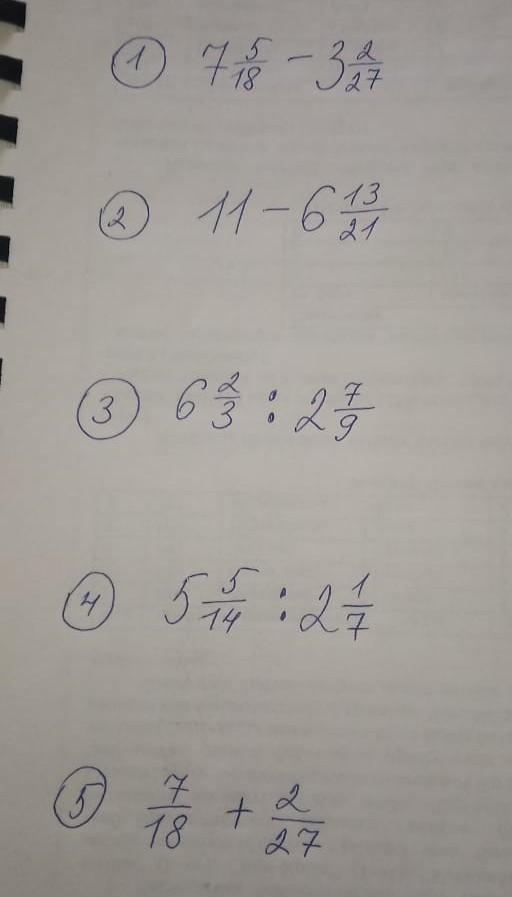 ① 7 5/18 - 3 2/27
② 11 - 6 13/21
③ 6 2/3 : 2 7/9
④ 5 5/14 : 2 1/7
⑤ 7/18 + 2/27